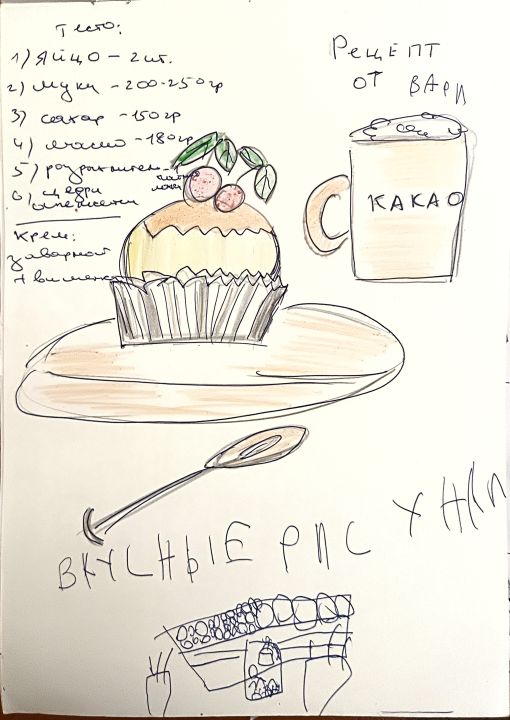 Тесто:
1) Яйцо - 2 шт.
2) Мука - 200-250 гр
3) сахар - 150 гр
4) масло - 180 гр
5) разрыхлитель - 1
чайн.
ложка
6) цедра
апельсина
Крем:
заварной
+ вишенка
Рецепт
от Вари
КАКАО
ВКУСНЫЕ РИСУНКИ